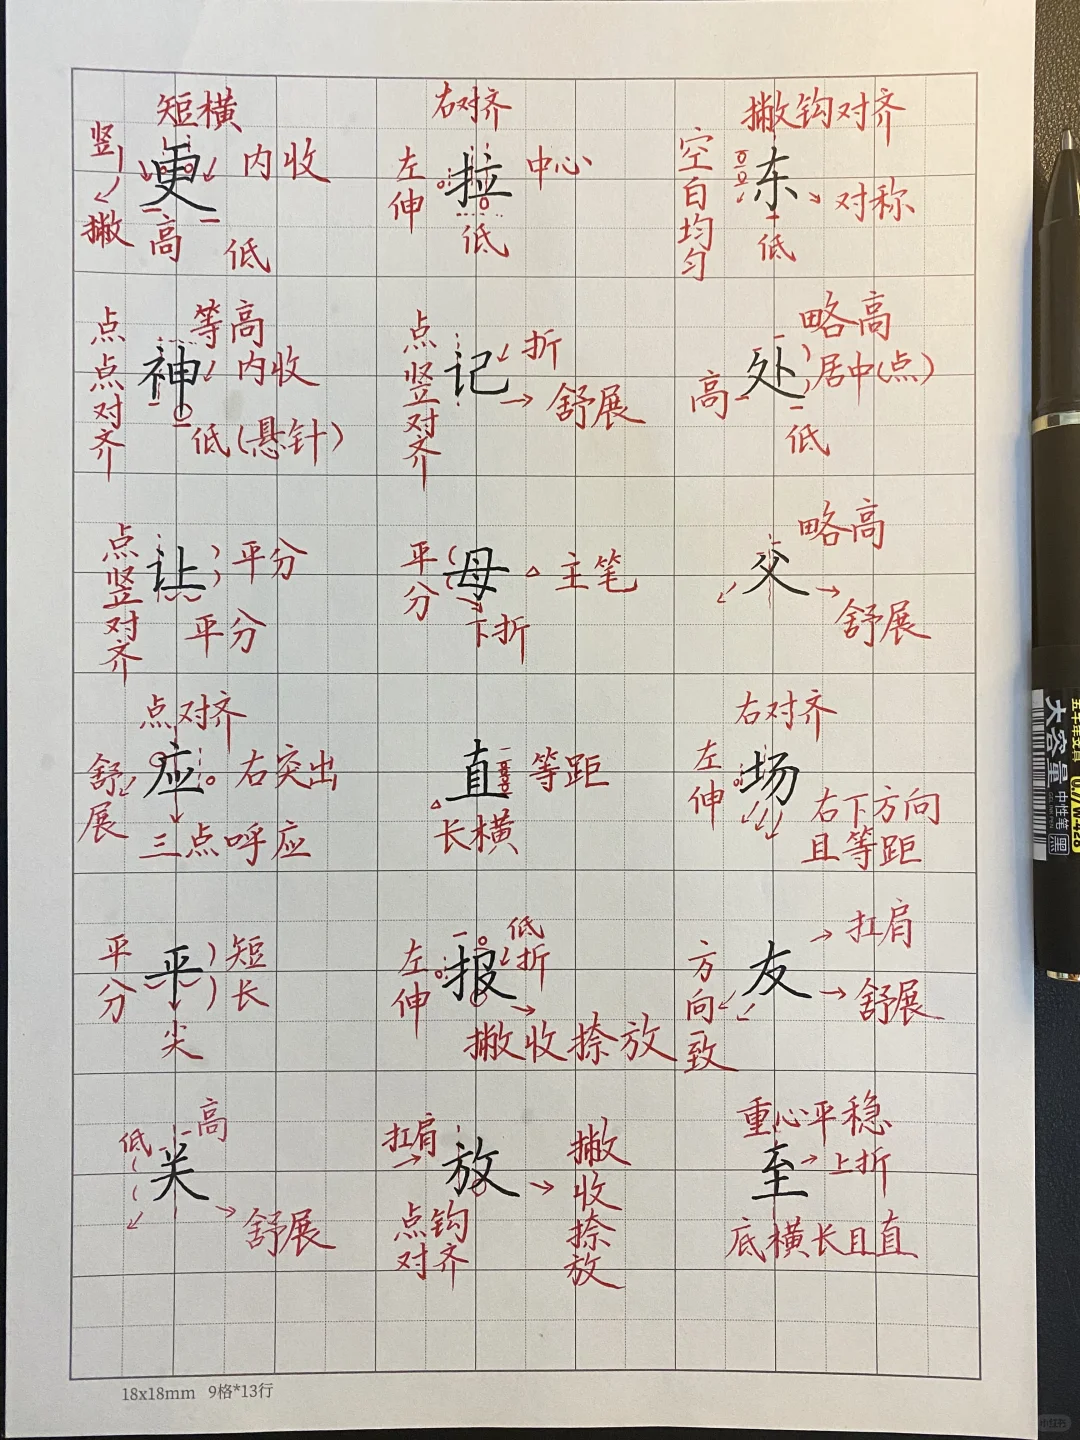 短横
竖
撇
更
内收
高
低
右对齐
左伸
拉
中心
低
撇钩对齐
空白均匀
东
对称
低
点点对齐
等高
神
内收
低(悬针)
点竖对齐
记
折
舒展
略高
处
居中(点)
高
低
点竖对齐
让
平分
平分
平分
母
主笔
下折
略高
交
舒展
点对齐
舒展
应
右突出
三点呼应
直
等距
长横
右对齐
左伸
场
右下方向
且等距
平分
平
短
长
尖
左伸
报
低
折
撇收捺放
方向一致
友
扛肩
舒展
高
低
关
舒展
扛肩
放
点钩
对齐
撇收捺放
重心平稳
至
上折
底横长且直
18x18mm 9格*13行
大容量
中性笔
黑
小红书